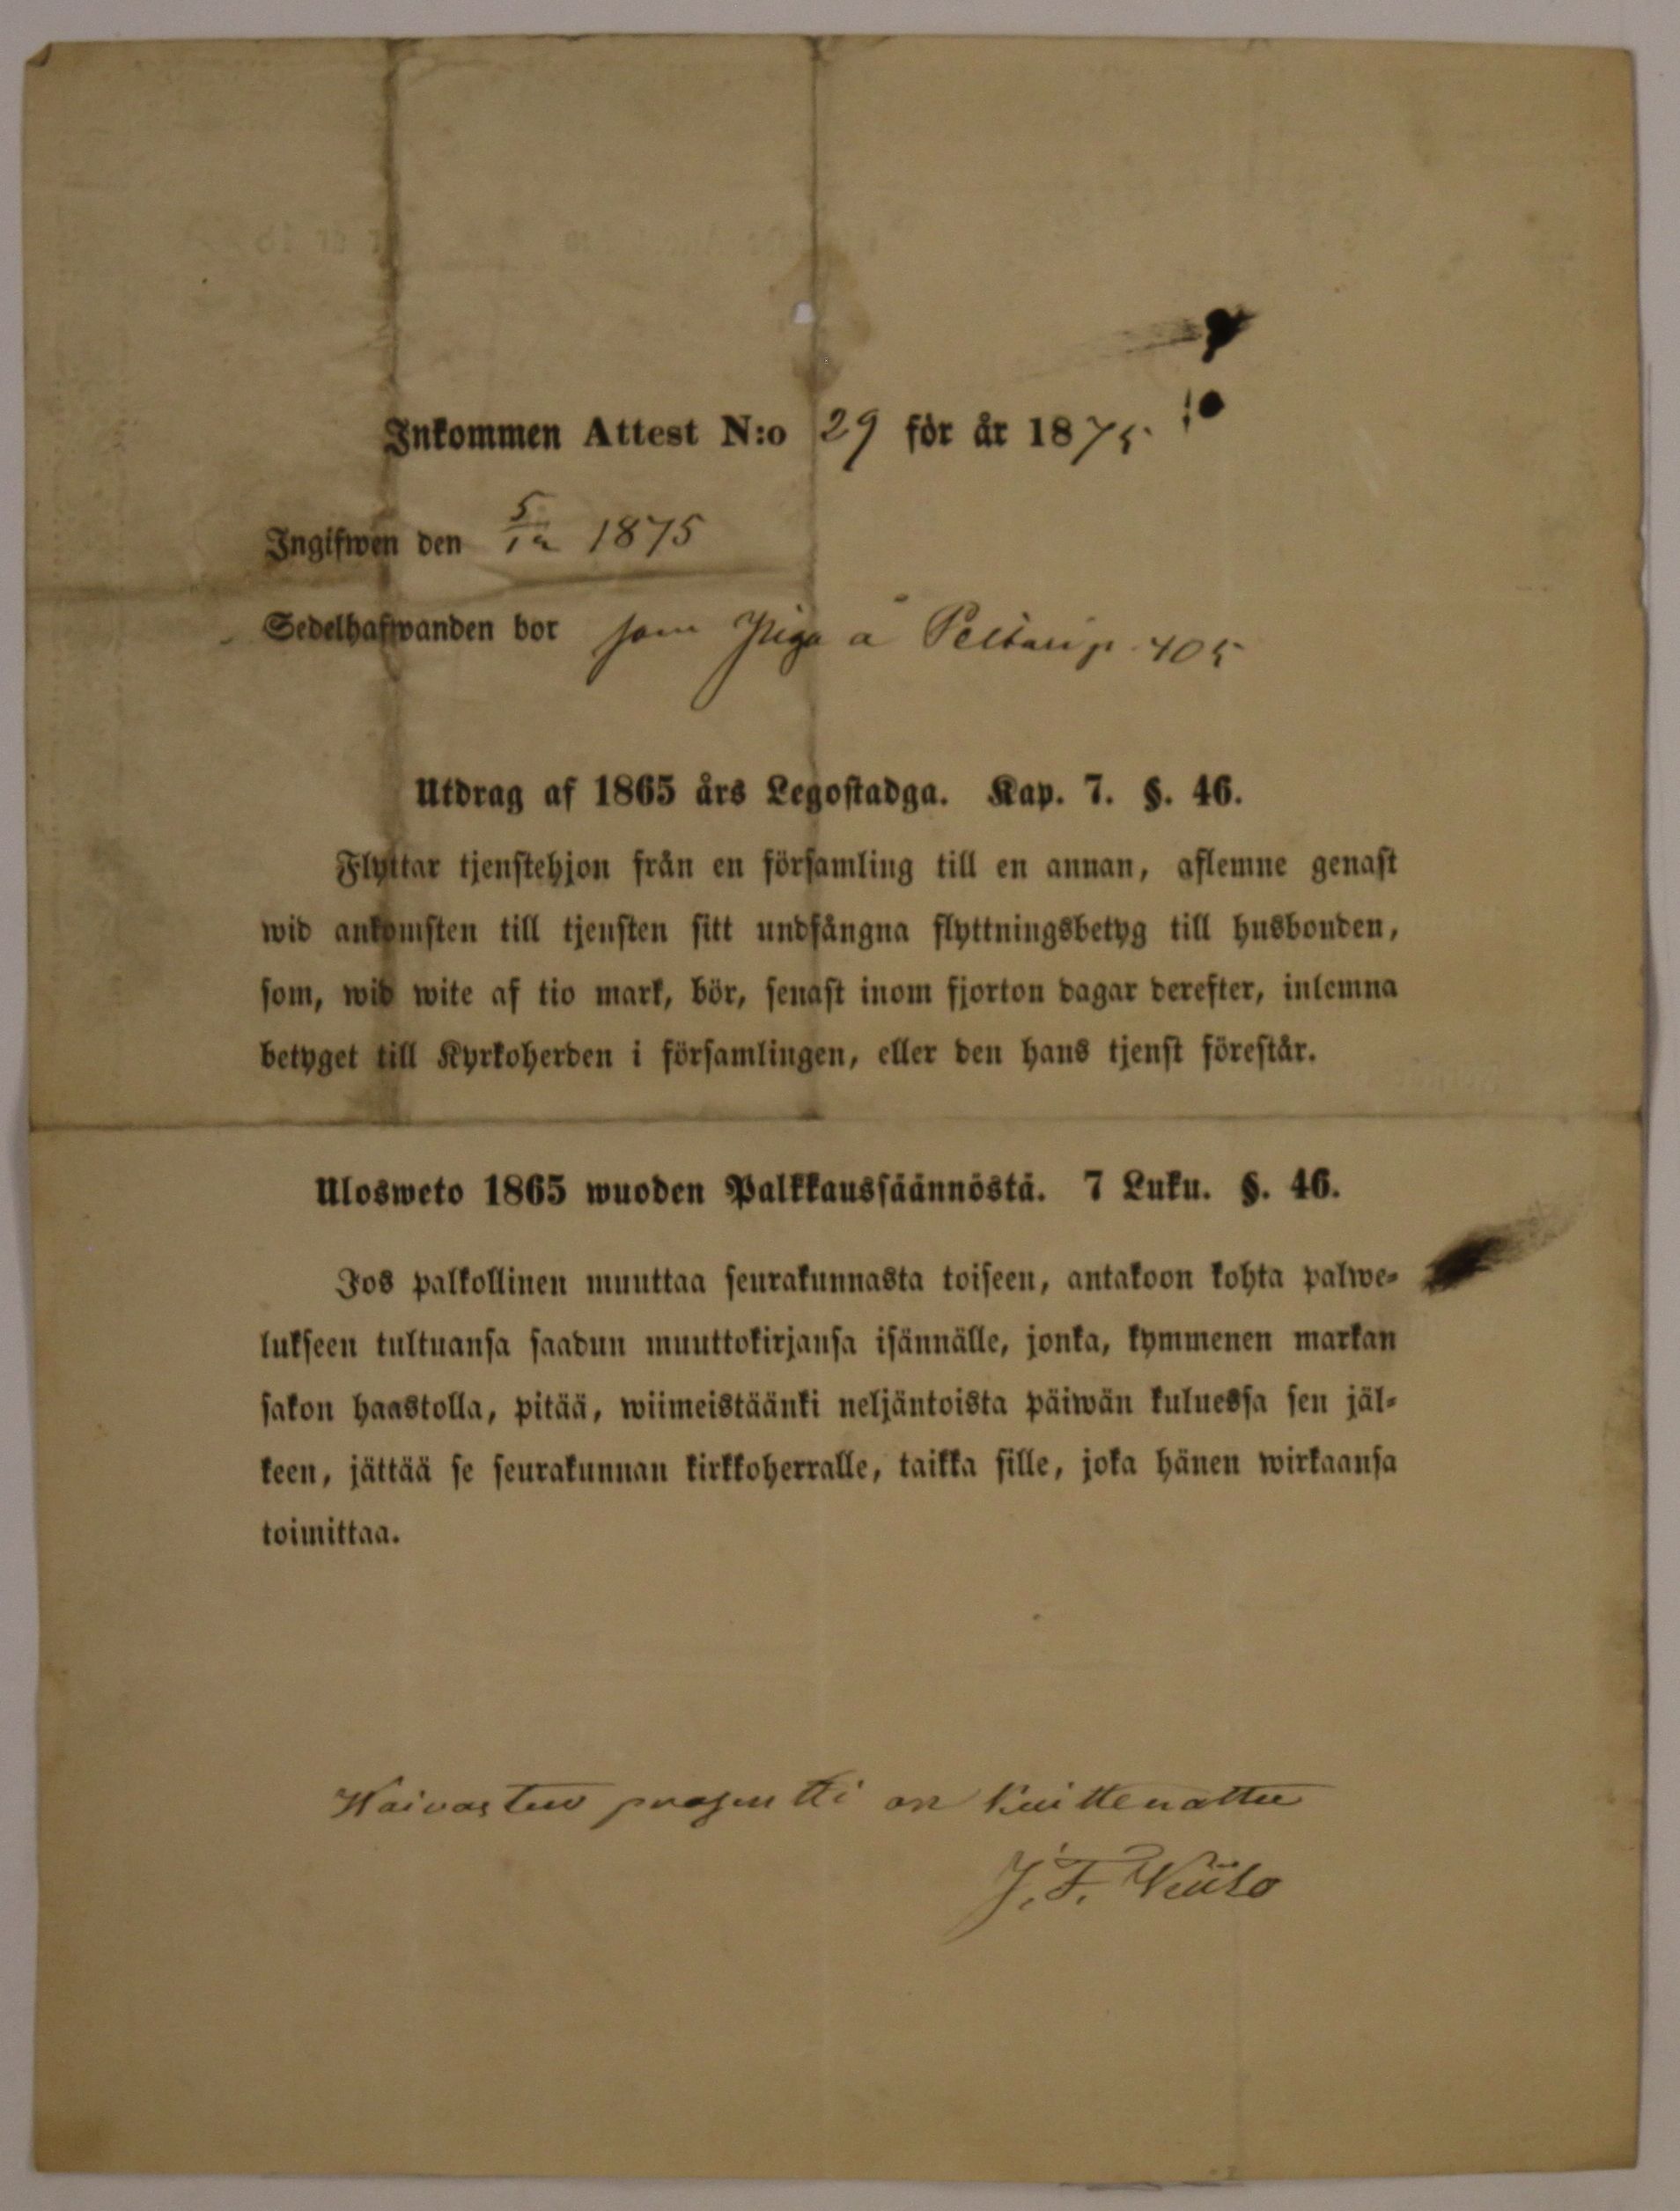 Inkommen Attest N:o 29 för år 1875
Ingifwen den 5/12 1875
Sedelhafwanden bor som Piga å p. 405
Utdrag af 1865 års Legostadga. Kap. 7. §. 46.
Flyttar tjenstehjon från en församling till en annan, aflemne genast
wid ankomsten till tjensten sitt undfångna flyttningsbetyg till husbonden,
som, wid wite af tio mark, bör, senast inom fjorton dagar derefter, inlemna
betyget till Kyrkoherden i församlingen, eller den hans tjenst förestår.
Ulosweto 1865 wuoden Palkkaussäännöstä. 7 Luku. §. 46.
Jos palkollinen muuttaa seurakunnasta toiseen, antakoon kohta palwe-
lukseen tultuansa saadun muuttokirjansa isännälle, jonka, kymmenen markan
sakon haastolla, pitää, wiimeistäänki neljäntoista päiwän kuluessa sen jäl-
keen, jättää se seurakunnan kirkkoherralle, taikka sille, joka hänen wirkaansa
toimittaa.
on kuittenattu
J. F.